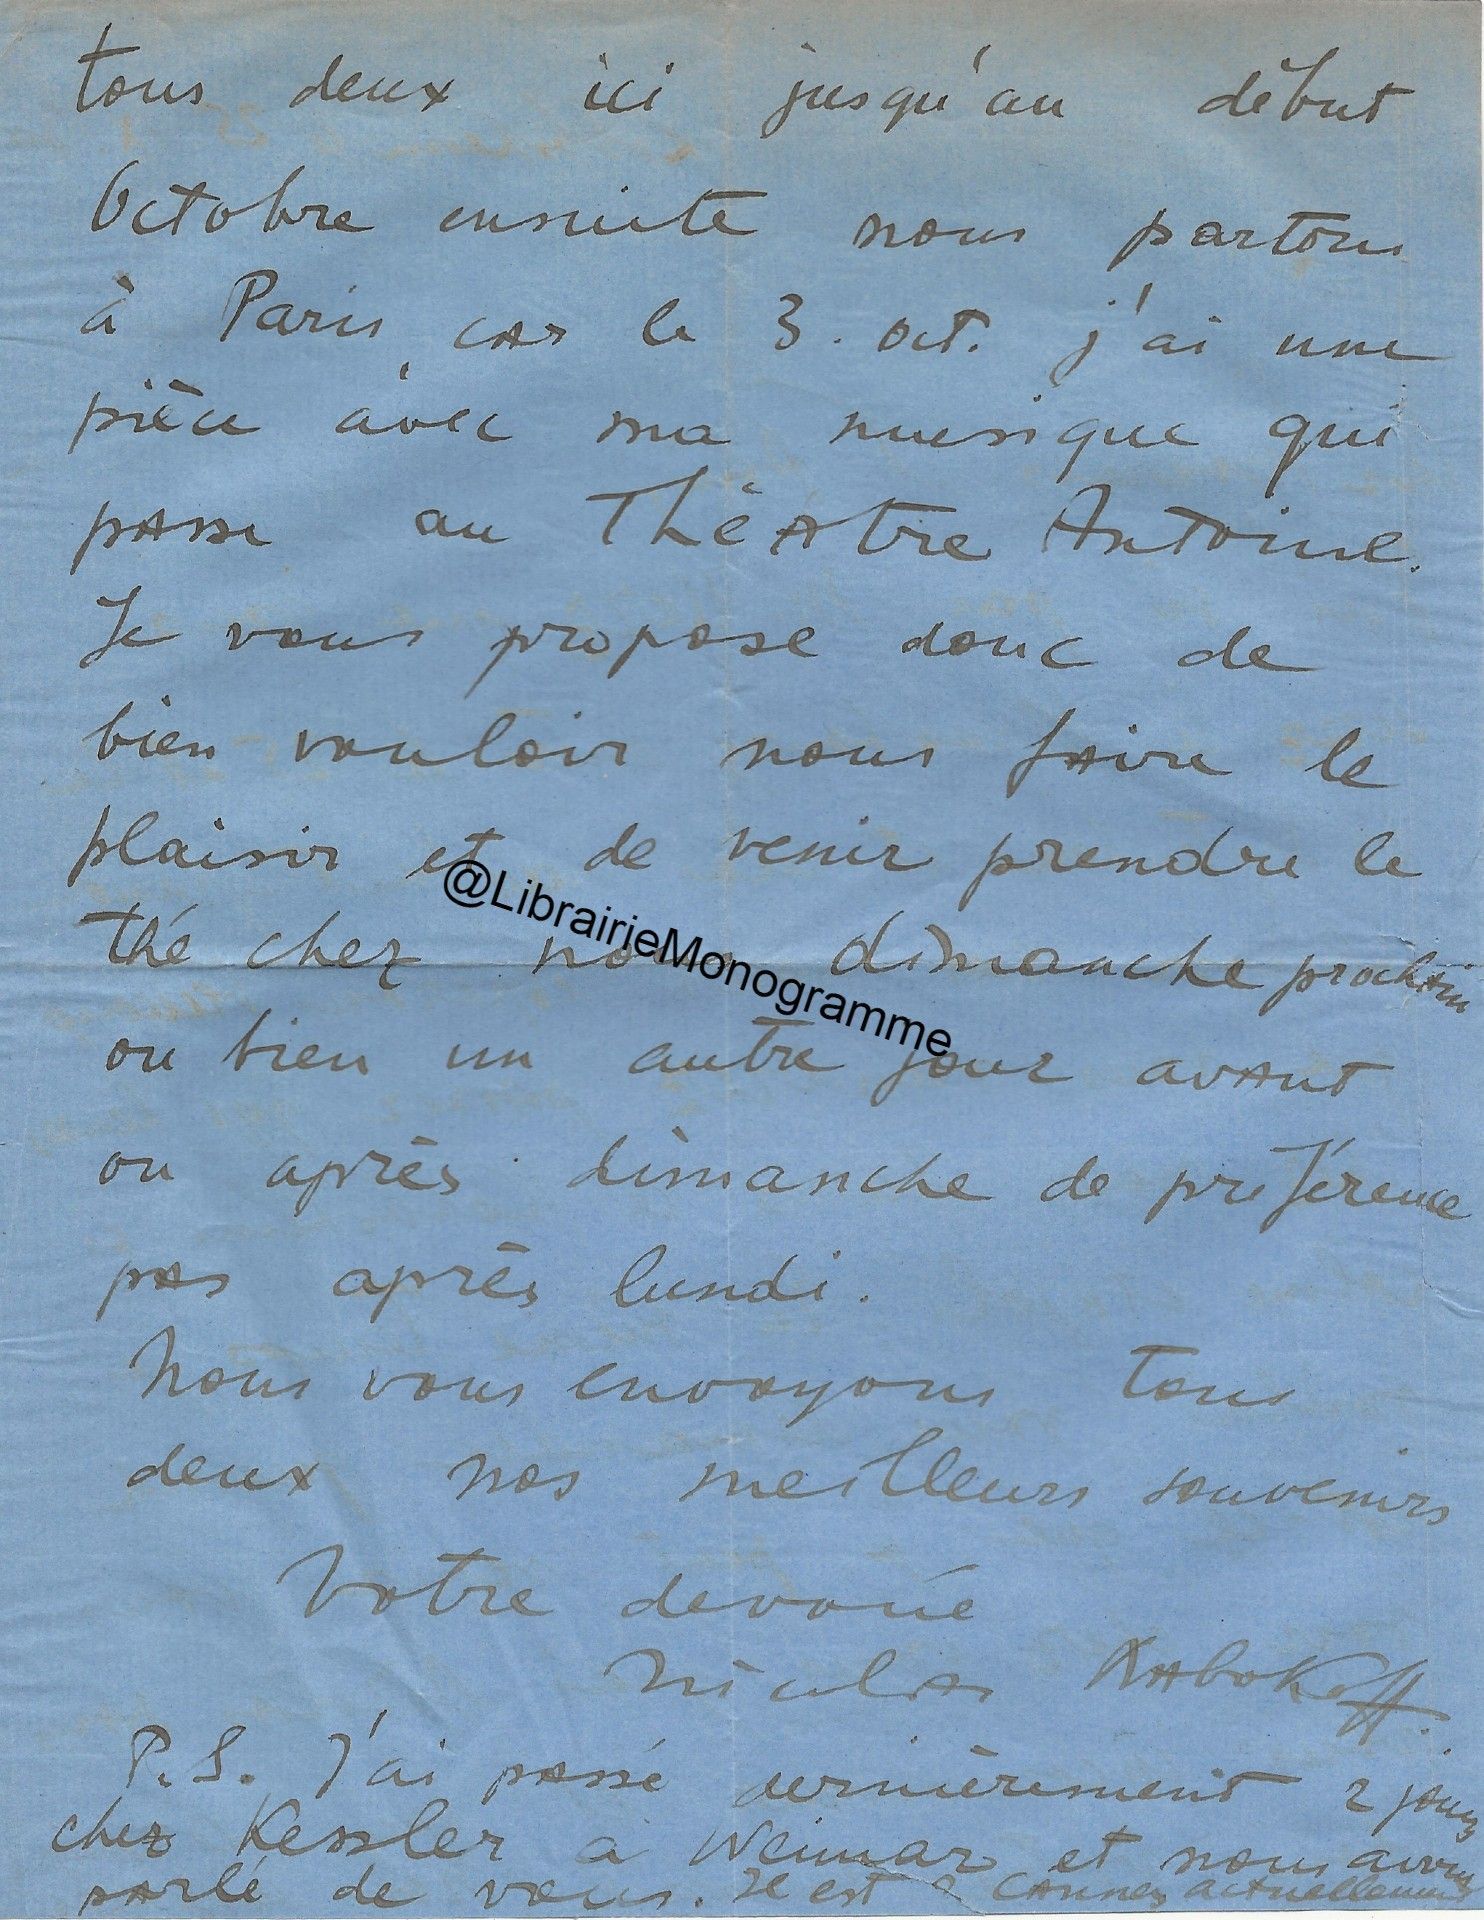 tous deux ici jusqu'au début
Octobre ensuite nous partons
à Paris, car le 3. oct. j'ai une
pièce avec ma musique qui
passe au Théatre Antoine.
Je vous propose donc de
bien vouloir nous faire le
plaisir et de venir prendre le
thé chez nous dimanche prochain
ou bien un autre jour avant
ou après dimanche de préférence
pas après lundi.
Nous vous envoyons tous
deux nos meilleurs souvenirs
Votre devoué
Nicolas Nabokoff.
P.S. J'ai passé dernièrement 2 jours
chez Kessler à Weimar et nous avons
parlé de vous. Il est à Cannes actuellement
@LibrairieMonogramme